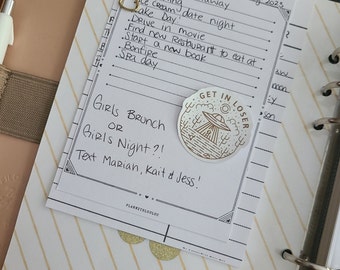 away
ice cream date night
Lake Day
Drive in movie
Find new Restaurant to eat at
Start a new book
Bonfire
Spa day
GET IN LOSER
Girls Brunch
OR
Girls Night?!
Text Mariah, Kait & Jess!